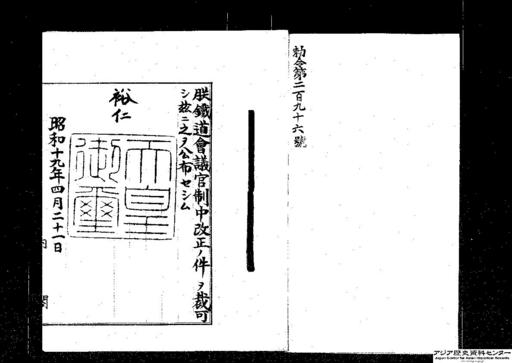 勅令第二百九十六號
朕鐵道會議官制中改正ノ件ヲ裁可
シ茲ニ之ヲ公布セシム
裕仁
天皇御璽
昭和十九年四月二十一日
内閣
アジア歴史資料センター
Japan Center for Asian Historical Records